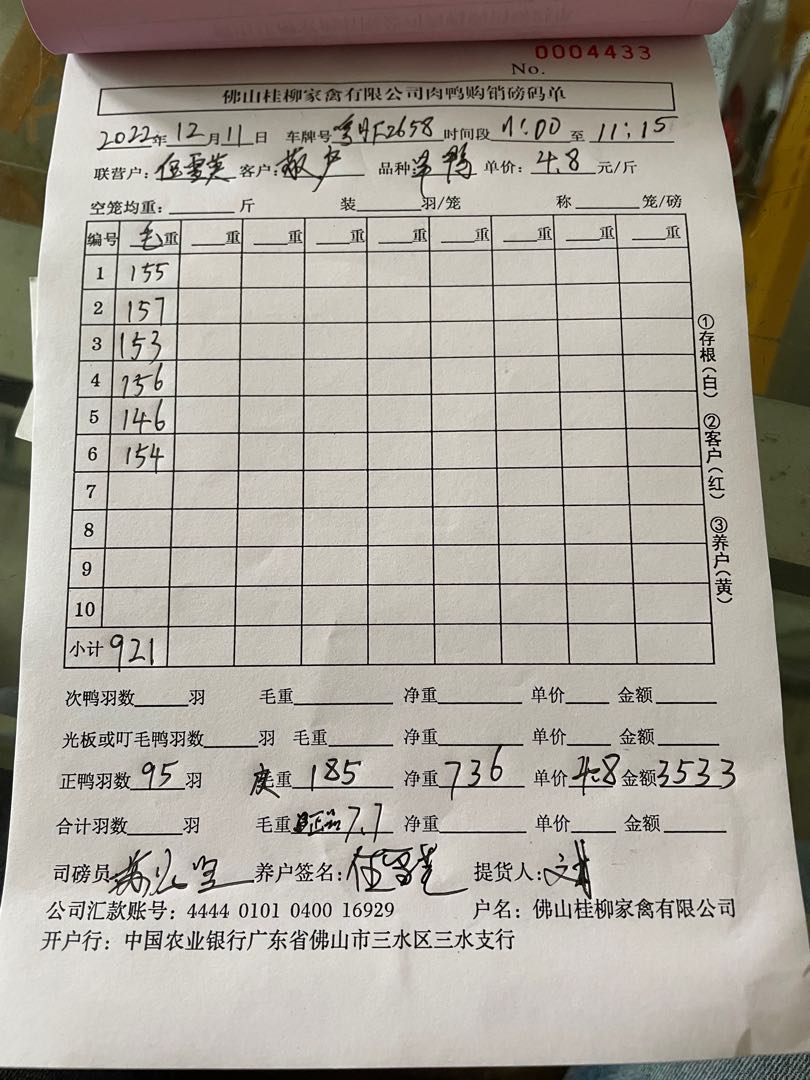 No. 0004433
佛山桂柳家禽有限公司肉鸭购销磅码单
2022年12月11日 车牌号 F2658 时间段 11:00 至 11:15
联营户: 伍雪 客户: 散户 品种: 鸭 单价: 4.8 元/斤
空笼均重: 斤 装 羽/笼 称 笼/磅
编号 毛重 重 重 重 重 重 重 重 重
1 155
2 157
3 153
4 156
5 146
6 154
7
8
9
10
小计 921
①存根(白) ②客户(红) ③养户(黄)
次鸭羽数 羽 毛重 净重 单价 金额
光板或叮毛鸭羽数 羽 毛重 净重 单价 金额
正鸭羽数 95 羽 毛重 185 净重 736 单价 4.8 金额 3533
合计羽数 羽 毛重 7.7 净重 单价 金额
司磅员: 养户签名: 提货人:
公司汇款账号: 4444 0101 0400 16929 户名: 佛山桂柳家禽有限公司
开户行: 中国农业银行广东省佛山市三水区三水支行